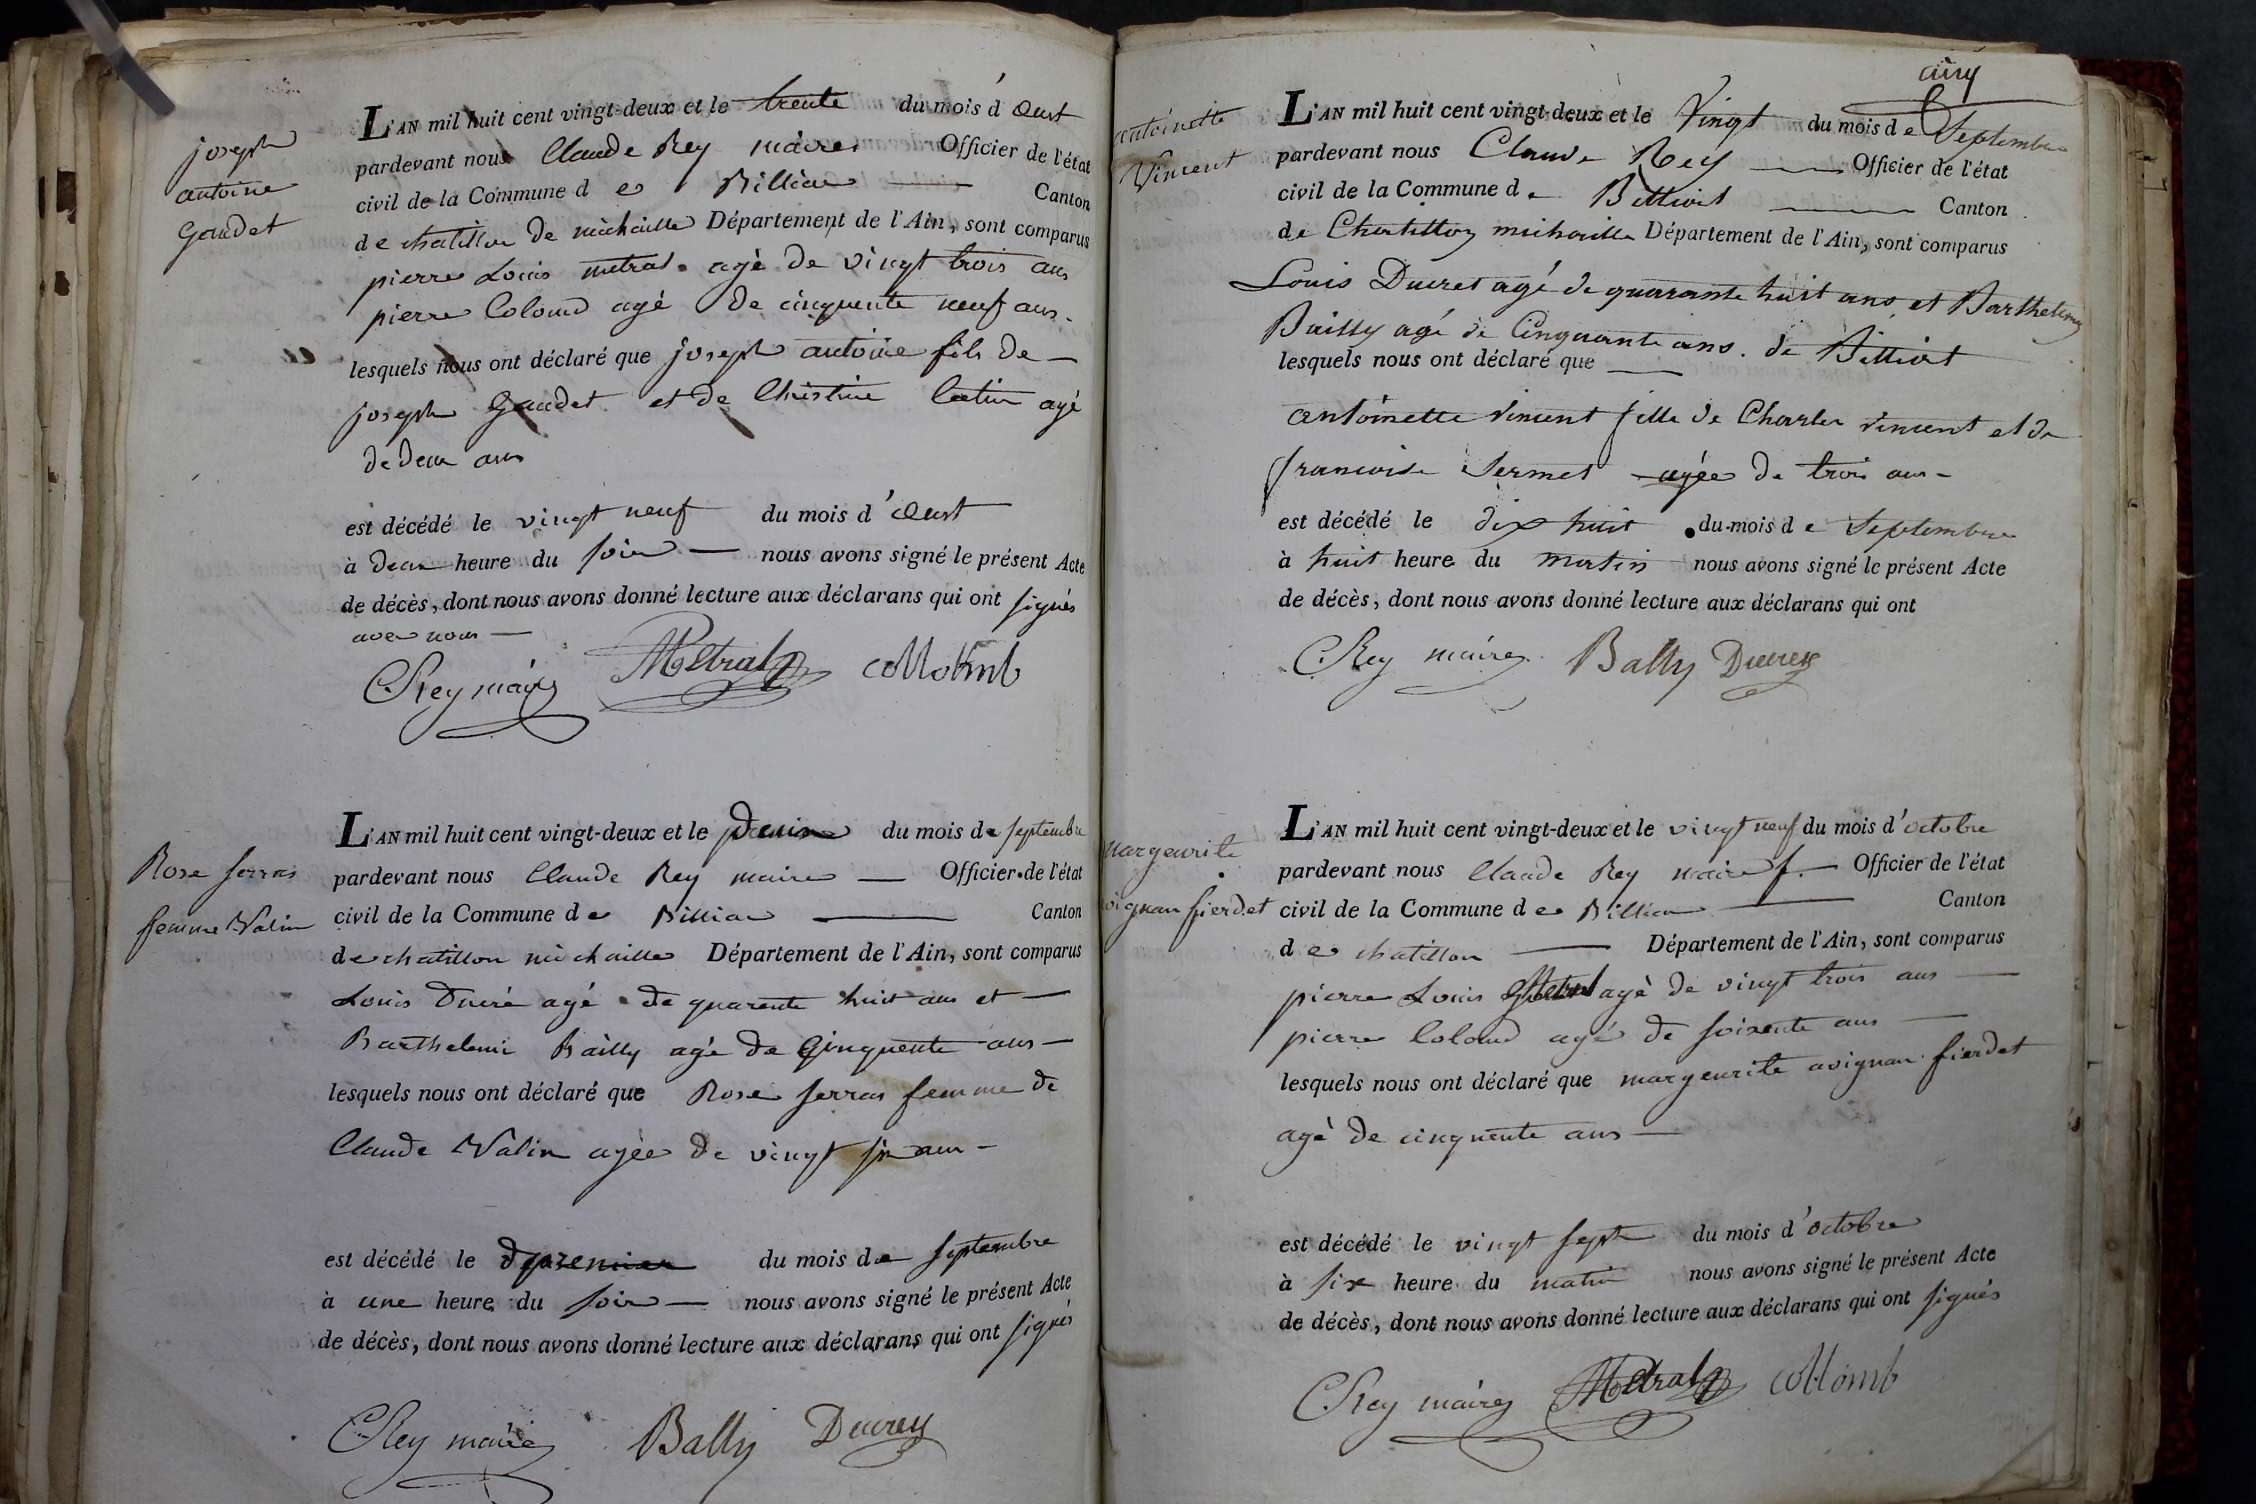 joseph
antoine
gaudet
L'AN mil huit cent vingt-deux et le trente du mois d'Oust
pardevant nous Claude Rey maire Officier de l'état
civil de la Commune de Billiat Canton
de chatillon de michaille Département de l'Ain, sont comparus
pierre Louis metral agé de vingt trois ans
pierre Colomb agé de cinquente neuf ans
lesquels nous ont déclaré que joseph antoine fils de
joseph gaudet et de Christine agé
de deux ans
est décédé le vingt neuf du mois d'Oust
à deux heure du soir nous avons signé le présent Acte
de décès, dont nous avons donné lecture aux déclarans qui ont signés
avec nous
C Rey maire Metral collomb
Rose serras
femme Valin
L'AN mil huit cent vingt-deux et le du mois de septembre
pardevant nous Claude Rey maire Officier de l'état
civil de la Commune de Billiat Canton
de chatillon michaille Département de l'Ain, sont comparus
Louis Ducré agé de quarente huit ans et
Barthelemi Bailly agé de cinquente ans
lesquels nous ont déclaré que Rose serras femme de
Claude Valin agée de vingt ans
est décédé le premier du mois de septembre
à une heure du soir nous avons signé le présent Acte
de décès, dont nous avons donné lecture aux déclarans qui ont signés
C Rey maire Bally Ducrey
antoinette
Vincent
L'AN mil huit cent vingt-deux et le Vingt du mois de Septembre
pardevant nous Claude Rey Officier de l'état
civil de la Commune de Billiat Canton
de Chatillon michaille Département de l'Ain, sont comparus
Louis Ducret agé de quarante huit ans, et Barthelemy
Bailly agé de Cinquante ans. de Billiat
lesquels nous ont déclaré que
antoinette vincent fille de Charles vincent et de
francoise Sermet agée de trois ans
est décédé le dix huit du mois de Septembre
à huit heure du matin nous avons signé le présent Acte
de décès, dont nous avons donné lecture aux déclarans qui ont
C Rey maire Bally Ducrey
margeurite
avignan fierdet
L'AN mil huit cent vingt-deux et le vingt neuf du mois d'octobre
pardevant nous Claude Rey maire Officier de l'état
civil de la Commune de Billiat Canton
de chatillon Département de l'Ain, sont comparus
pierre Louis Metral agé de vingt trois ans
pierre Colomb agé de soixente ans
lesquels nous ont déclaré que margeurite avignan fierdet
agé de cinquente ans
est décédé le vingt sept du mois d'octobre
à six heure du matin nous avons signé le présent Acte
de décès, dont nous avons donné lecture aux déclarans qui ont signés
C Rey maire Metral collomb